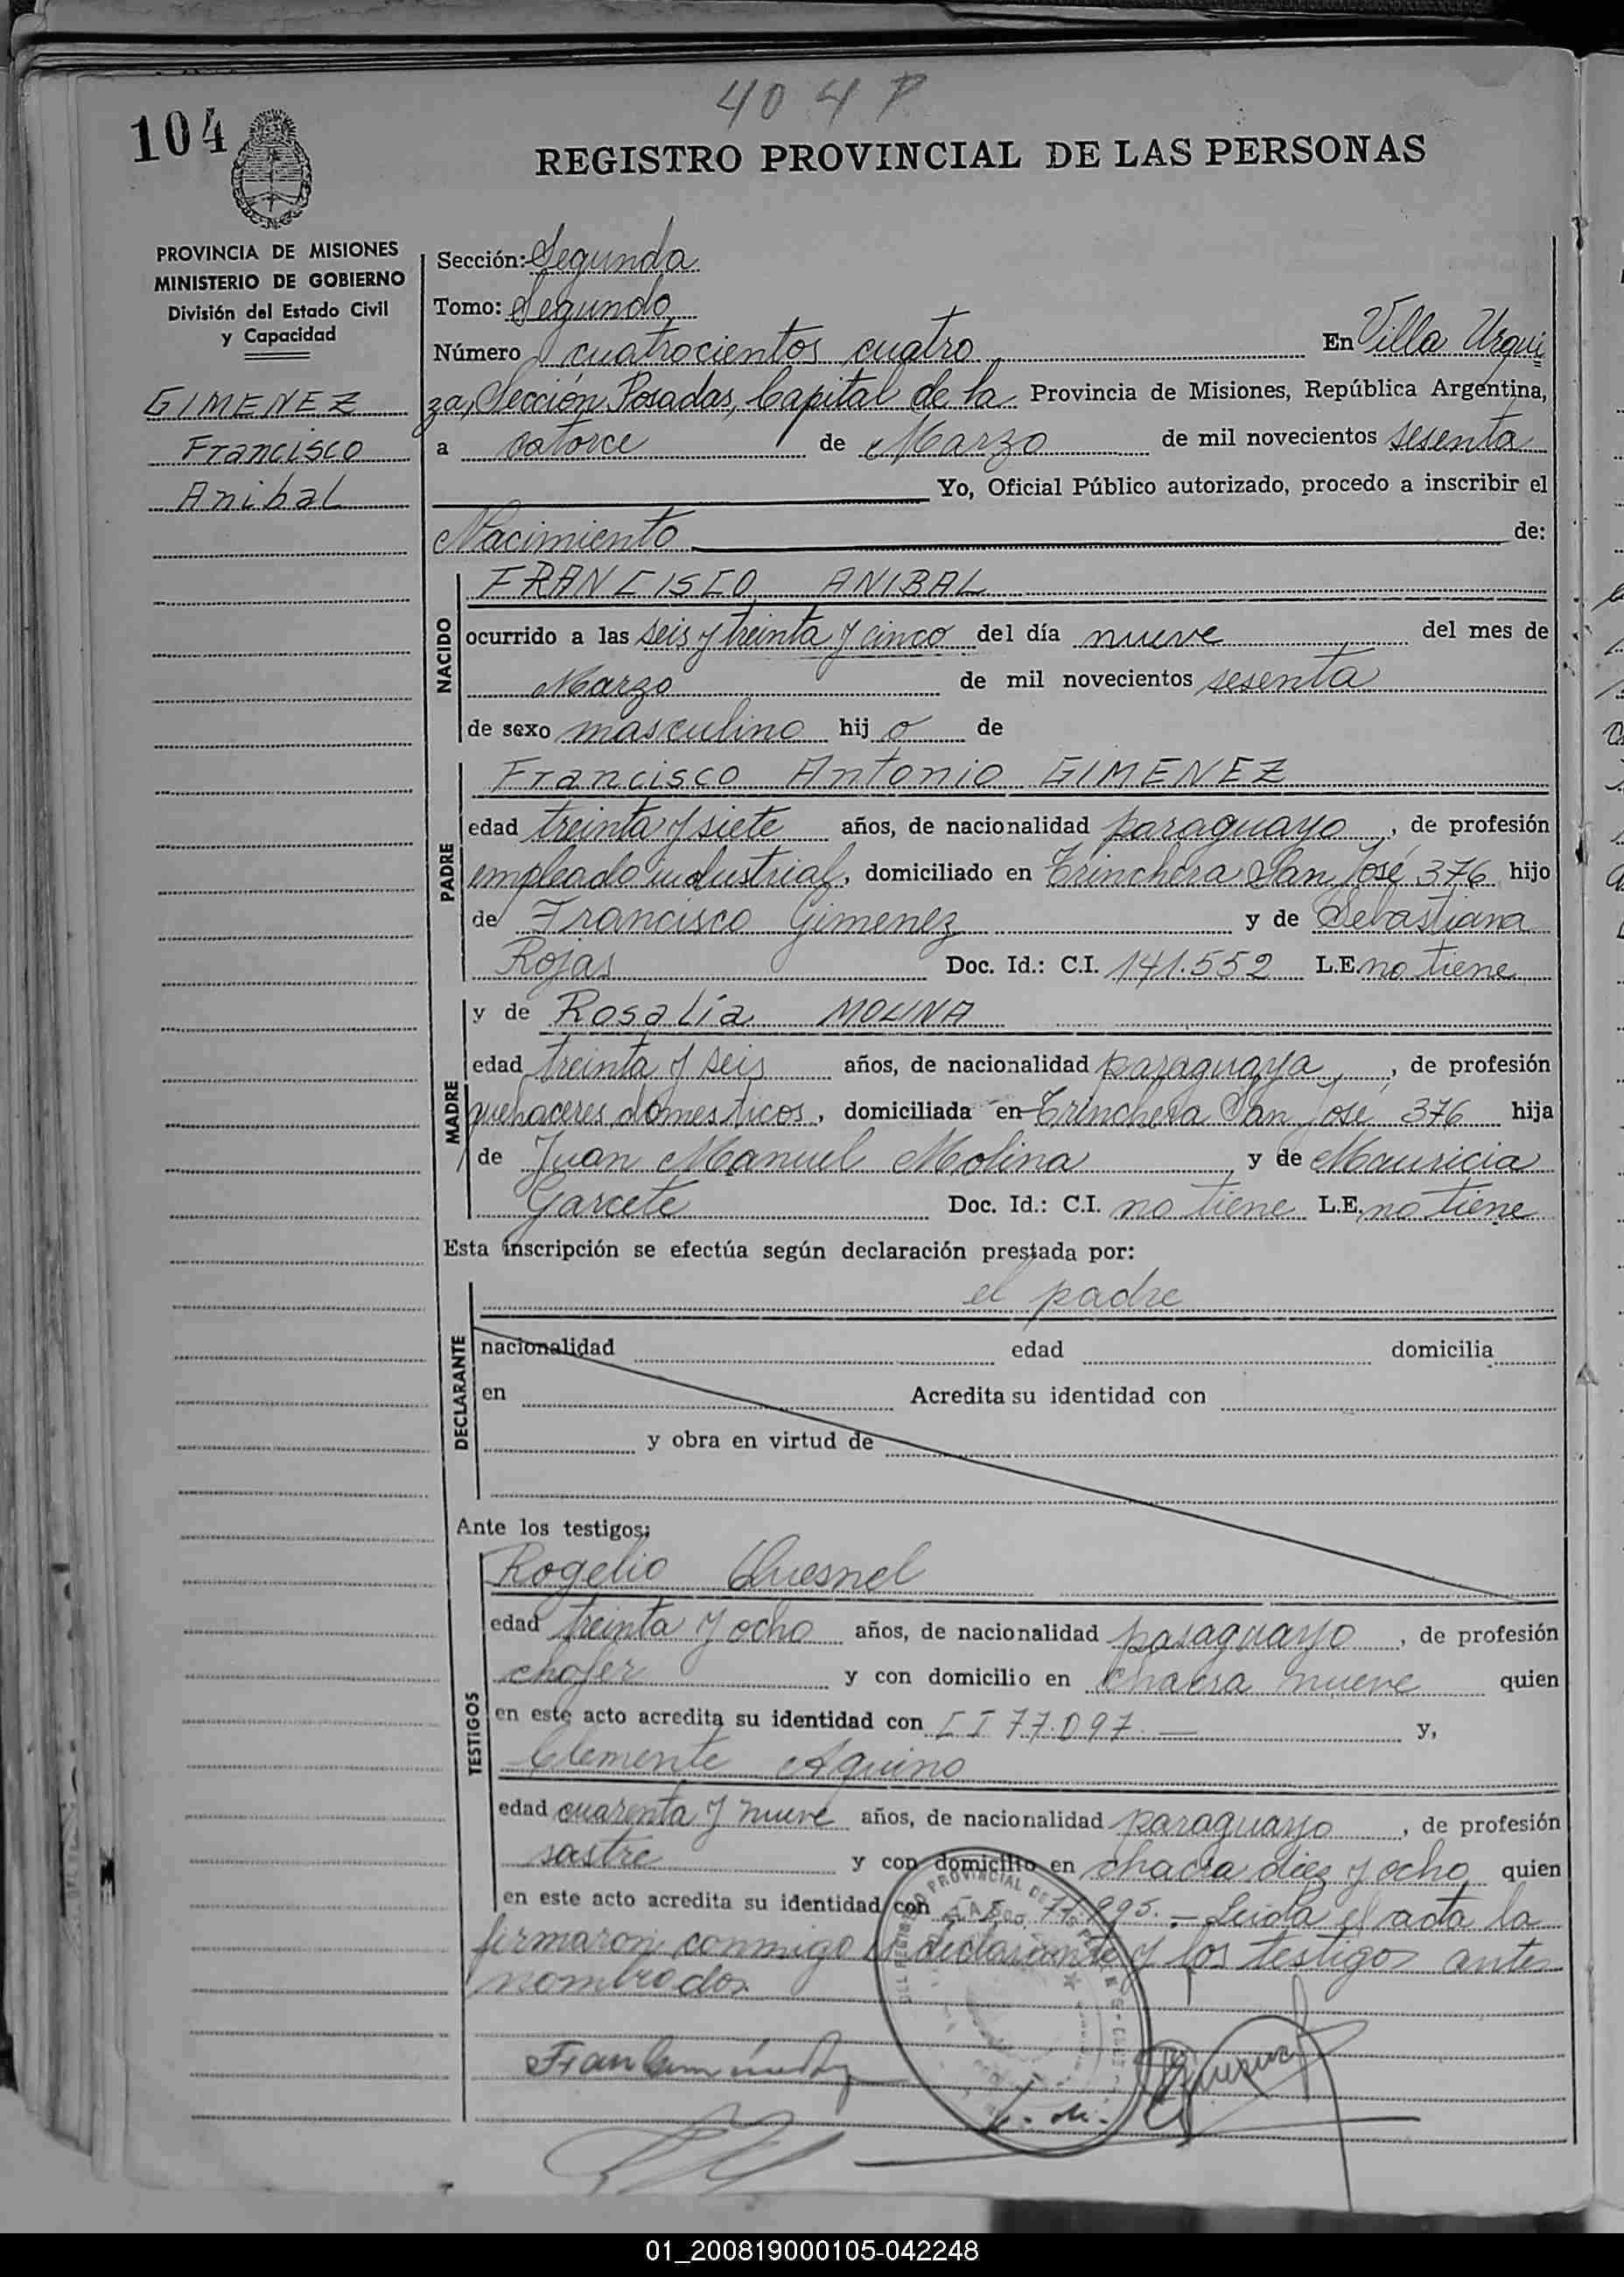 404 P
104
REGISTRO PROVINCIAL DE LAS PERSONAS
PROVINCIA DE MISIONES
MINISTERIO DE GOBIERNO
División del Estado Civil
y Capacidad
GIMENEZ
Francisco
Anibal
Sección: Segunda
Tomo: Segundo
Número cuatrocientos cuatro En Villa Urqui
za, Sección Posadas, Capital de la Provincia de Misiones, República Argentina,
a catorce de Marzo de mil novecientos sesenta
Yo, Oficial Público autorizado, procedo a inscribir el
Nacimiento de:
NACIDO
FRANCISCO ANIBAL
ocurrido a las seis y treinta y cinco del día nueve del mes de
Marzo de mil novecientos sesenta
de sexo masculino hij o de
PADRE
Francisco Antonio GIMENEZ
edad treinta y siete años, de nacionalidad paraguayo, de profesión
empleado industrial, domiciliado en Trinchera San José 376 hijo
de Francisco Gimenez y de Sebastiana
Rojas Doc. Id.: C.I. 141.552 L.E. no tiene
MADRE
y de Rosalía MOLINA
edad treinta y seis años, de nacionalidad paraguaya, de profesión
quehaceres domesticos, domiciliada en Trinchera San José 376 hija
de Juan Manuel Molina y de Mauricia
Garcete Doc. Id.: C.I. no tiene L.E. no tiene
Esta inscripción se efectúa según declaración prestada por:
DECLARANTE
el padre
nacionalidad edad domicilia
en Acredita su identidad con
y obra en virtud de
Ante los testigos:
TESTIGOS
Rogelio Quesnel
edad treinta y ocho años, de nacionalidad paraguayo, de profesión
chofer y con domicilio en chacra nueve quien
en este acto acredita su identidad con C I 77.097 — y,
Clemente Aquino
edad cuarenta y nueve años, de nacionalidad paraguayo, de profesión
sastre y con domicilio en chacra diez y ocho quien
en este acto acredita su identidad con C I. 71.995. — Leida el acta la
firmaron conmigo el declarante y los testigos antes
nombrados
01_200819000105-042248